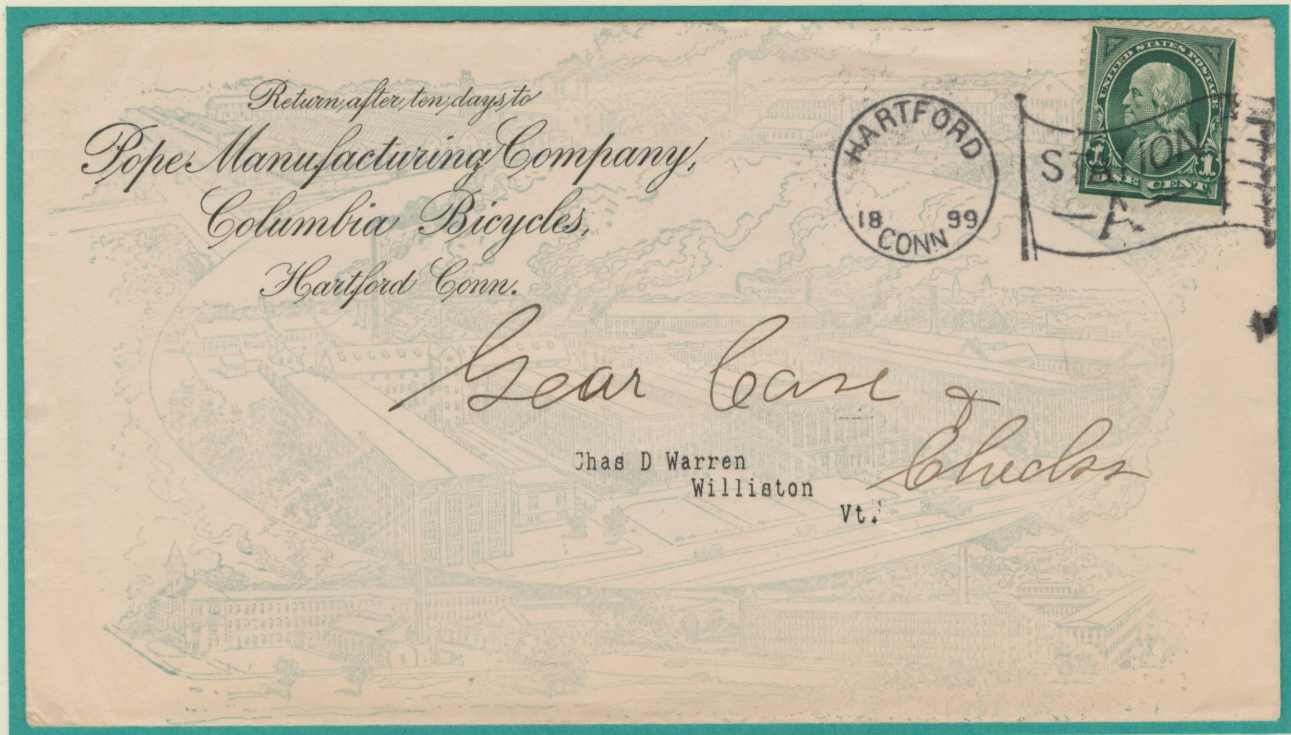 Return after ten days to
Pope Manufacturing Company,
Columbia Bicycles,
Hartford Conn.
HARTFORD
18 99
CONN
STATION
A
UNITED STATES POSTAGE
1 1
ONE CENT
Gear Case &
Checks
Chas D Warren
Williston
Vt.